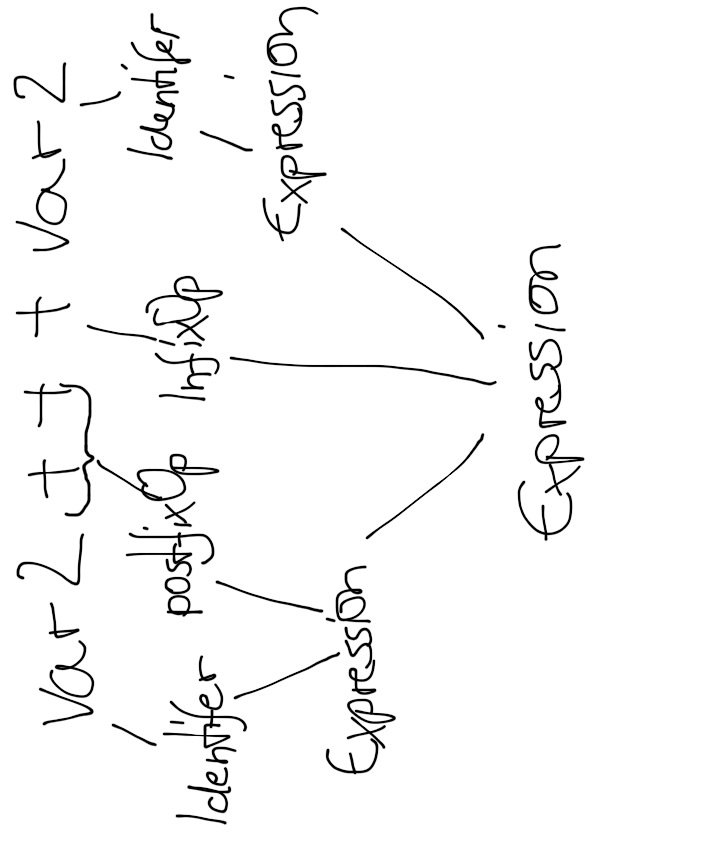 Var2 + + + Var2
Identifer postfixOp InfixOp Identifer
Expression Expression
Expression